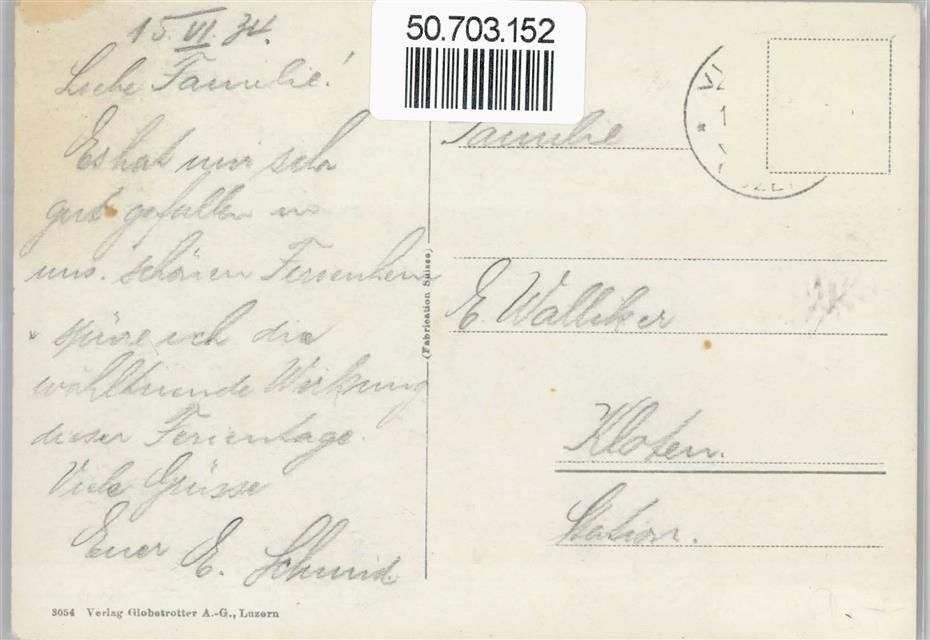 50.703.152
15. VI. 34.
Liebe Familie!
Es hat mir sehr
gut gefallen in
uns. schönen Ferienheim
spüre ich die
wohltuende Wirkung
dieser Ferientage.
Viele Grüsse
Euer E. Schmid.
3054 Verlag Globetrotter A.-G., Luzern
(Fabrication Suisse)
Familie
E. Walliker
Kloten.
Station.